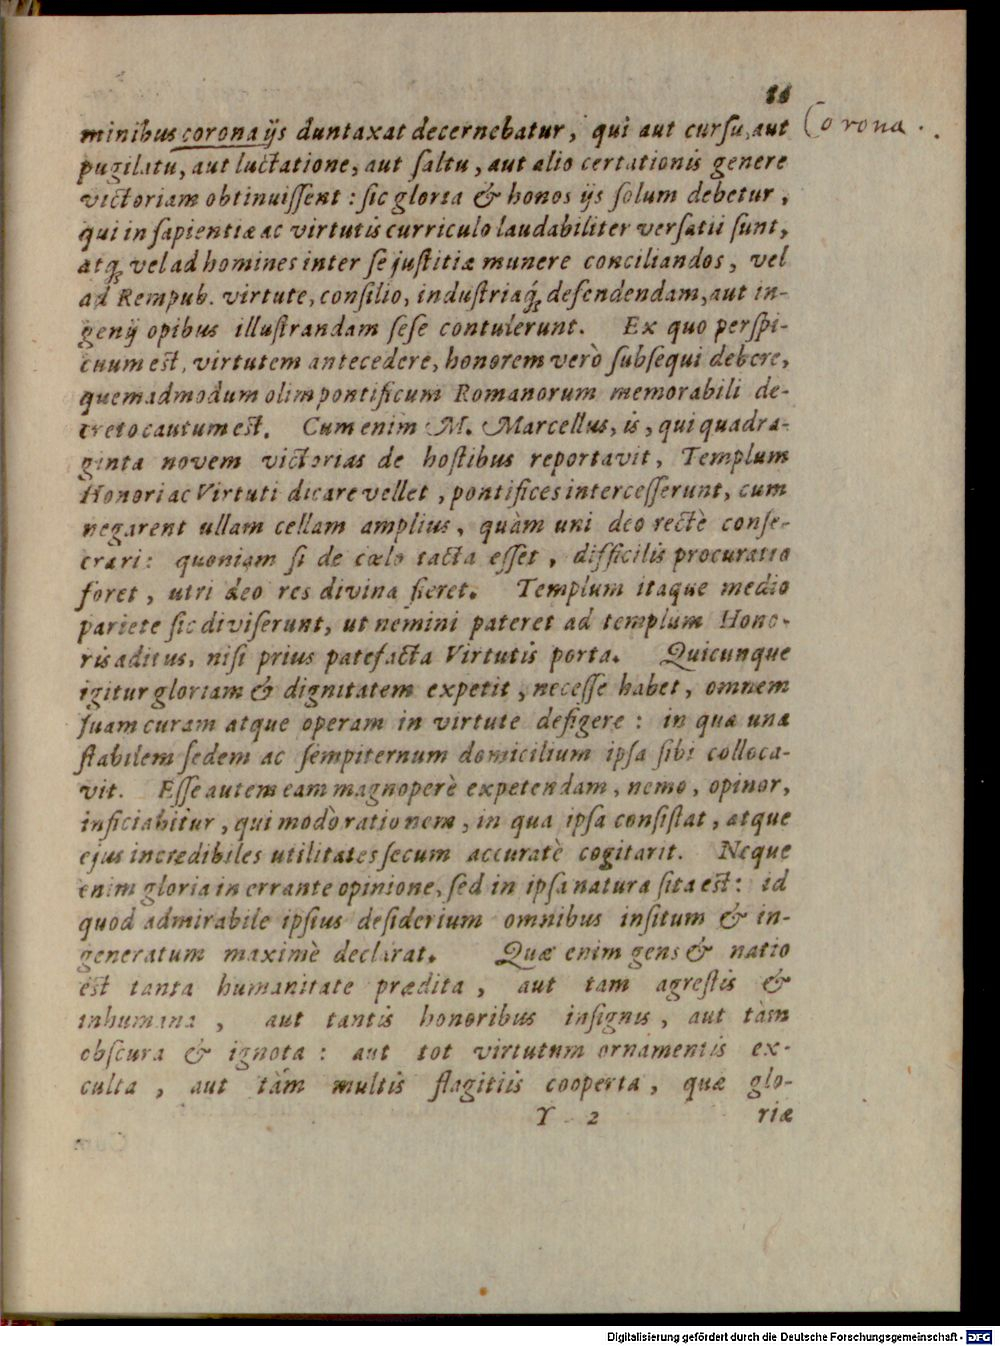 11
minibus corona ijs duntaxat decernebatur, qui aut cursu, aut
Corona.
pugilatu, aut luctatione, aut saltu, aut alio certationis genere
victoriam obtinuissent: sic gloria & honos ijs solum debetur,
qui in sapientiæ ac virtutis curriculo laudabiliter versatii sunt,
atq; vel ad homines inter se justitiæ munere conciliandos, vel
ad Rempub. virtute, consilio, industriaq́; defendendam, aut in-
genij opibus illustrandam sese contulerunt. Ex quo perspi-
cuum est, virtutem antecedere, honorem verò subsequi debere,
quemadmodum olim pontificum Romanorum memorabili de-
creto cautum est. Cum enim M. Marcellus, is, qui quadra-
ginta novem victorias de hostibus reportavit, Templum
Honori ac Virtuti dicare vellet, pontifices intercesserunt, cum
negarent ullam cellam amplius, quàm uni deo rectè conse-
crari: quoniam si de cœlo tacta esset, difficilis procuratio
foret, utri deo res divina fieret. Templum itaque medio
pariete sic diviserunt, ut nemini pateret ad templum Hono-
ris aditus, nisi prius patefacta Virtutis porta. Quicunque
igitur gloriam & dignitatem expetit, necesse habet, omnem
suam curam atque operam in virtute defigere: in qua una
stabilem sedem ac sempiternum domicilium ipsa sibi colloca-
vit. Esse autem eam magnoperè expetendam, nemo, opinor,
inficiabitur, qui modò rationem, in qua ipsa consistat, atque
ejus incredibiles utilitates secum accuratè cogitarit. Neque
enim gloria in errante opinione, sed in ipsa natura sita est: id
quod admirabile ipsius desiderium omnibus insitum & in-
generatum maximè declarat. Quæ enim gens & natio
est tanta humanitate prædita, aut tam agrestis &
inhumana, aut tantis honoribus insignis, aut tàm
obscura & ignota: aut tot virtutum ornamentis ex-
culta, aut tám multis flagitiis cooperta, quæ glo-
Y 2 riæ
Digitalisierung gefördert durch die Deutsche Forschungsgemeinschaft - DFG